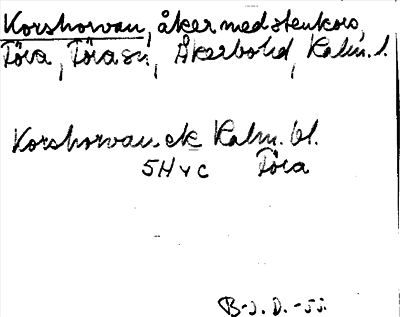 Korshorvan, åker med stenkors,
Föra, Föra sn, Åkerbohd, Kalm. l.
Korshorvan ek Kalm. bl.
5H v c Föra
B-j. D. -55.